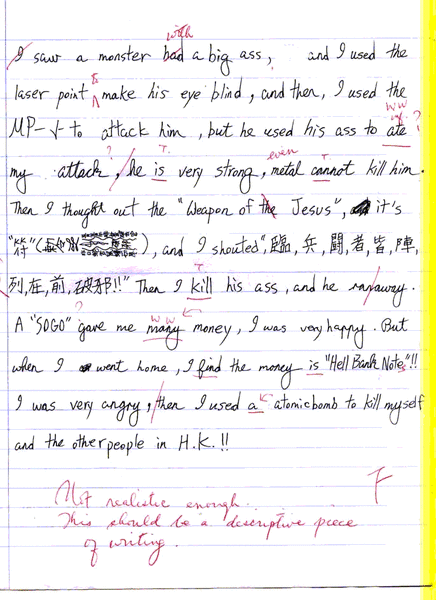 with
I saw a monster had a big ass, and I used the
laser point to make his eye blind, and then, I used the
MP-5 to attack him, but he used his ass to ate
my attack, he is very strong, metal cannot kill him.
even
Then I thought out the "Weapon of the Jesus", it's
"符" ( ), and I shouted", 臨, 兵, 鬪, 者, 皆, 陣,
列, 在, 前, 破邪!!" Then I kill his ass, and he ran away.
A "SOGO" gave me many money, I was very happy. But
when I went home, I find the money is "Hell Bank Notes"!!
I was very angry, then I used a atomic bomb to kill myself
and the other people in H.K.!!
Not realistic enough.
This should be a descriptive piece
of writing.
F